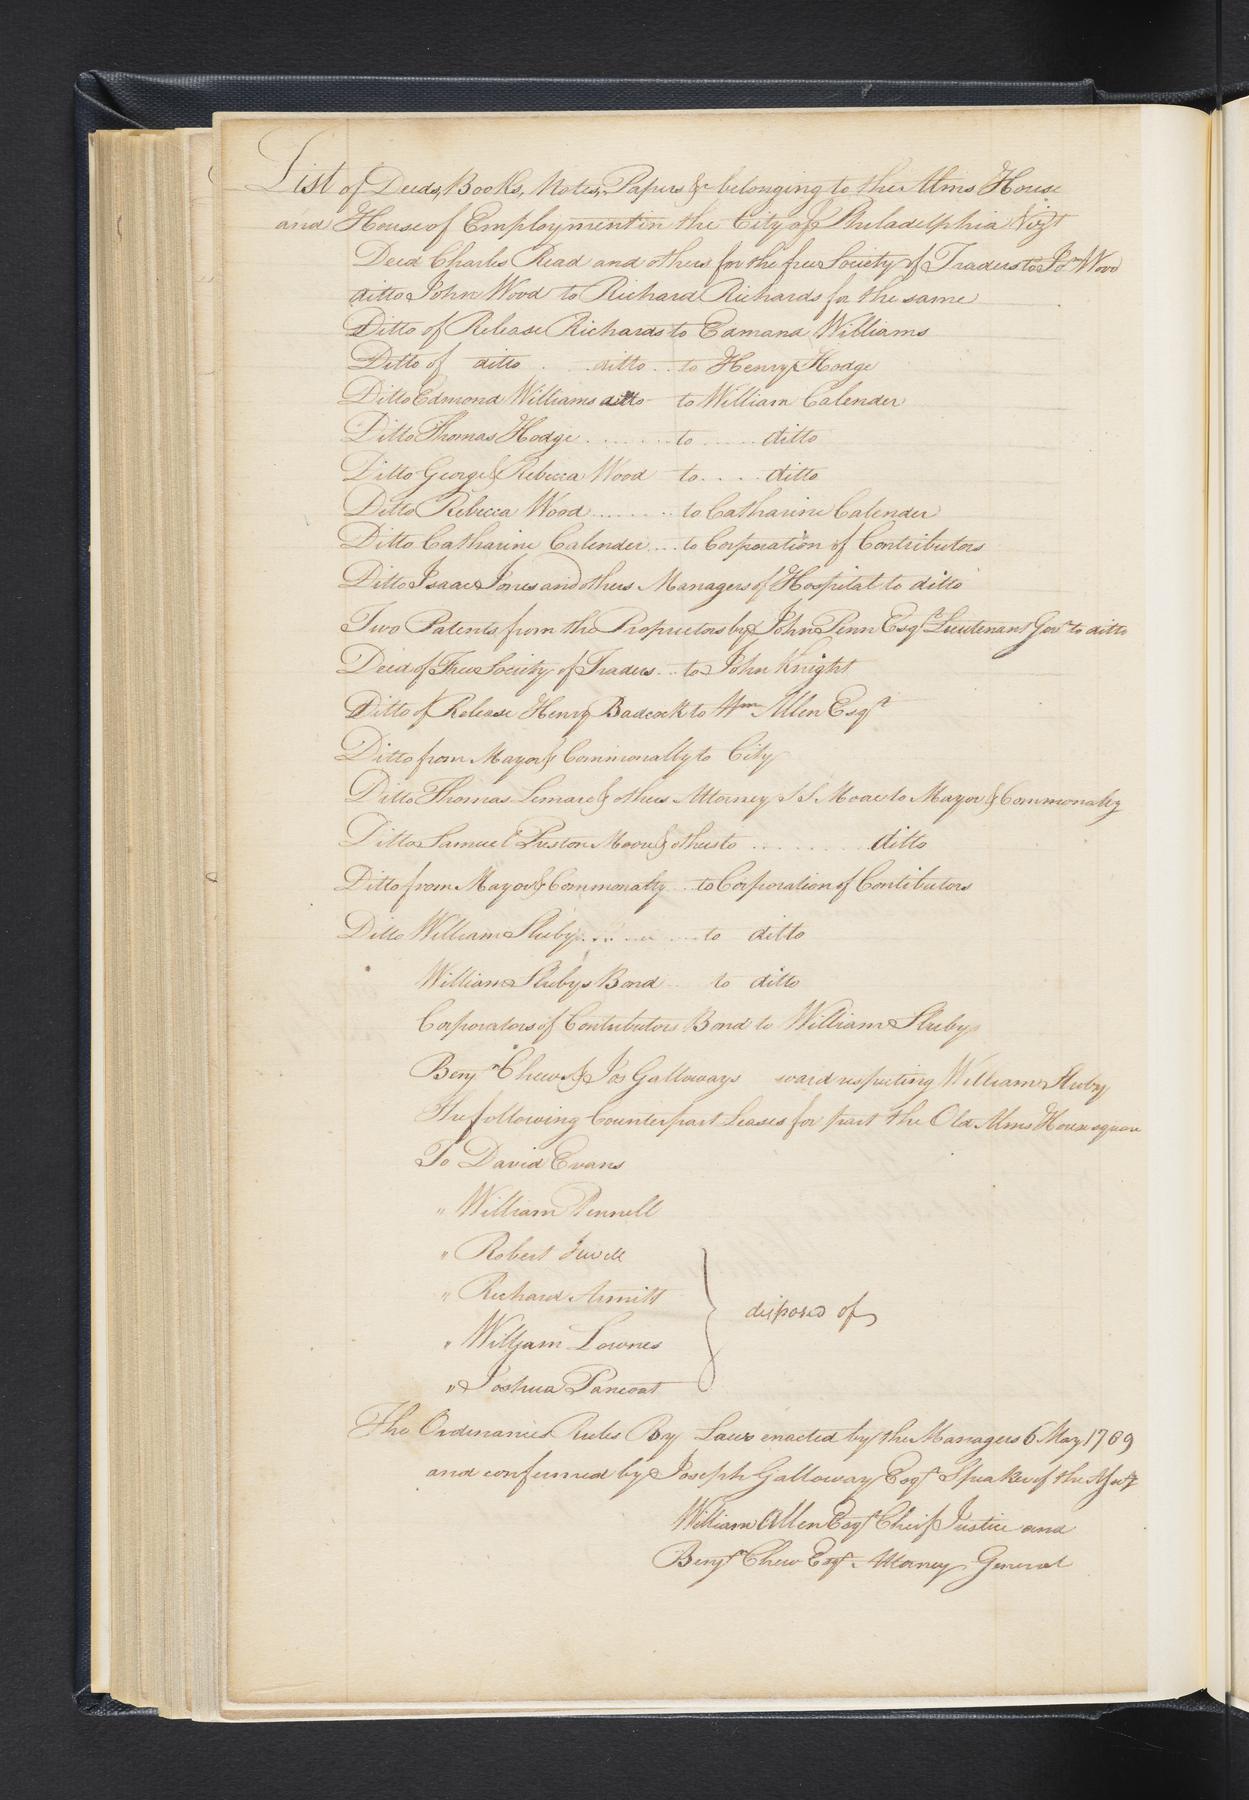 List of Deeds, Books, Notes, Papers &c belonging to the Alms House
and House of Employment in the City of Philadelphia Vizt
Deed Charles Read and others for the free Society of Traders to Jon Wood
ditto John Wood to Richard Richards for the same
Ditto of Release Richards to Edmand Williams
Ditto of ditto . . ditto . . to Henry Hodge
Ditto Edmond Williams ditto to William Calender
Ditto Thomas Hodge . . . . . . . . to . . . . . ditto
Ditto George & Rebecca Wood to . . . . ditto
Ditto Rebecca Wood . . . . . . . . to Catharine Calender
Ditto Catharine Calender . . . to Corporation of Contributors
Ditto Isaac Jones and others Managers of Hospital to ditto
Two Patents from the Proprietors by John Penn Esqr Lieutenant Govr to ditto
Deed of Free Society of Traders . . to John Knight
Ditto of Release Henry Badcock to Wm Allen Esqr
Ditto from Mayor & Commonalty to City
Ditto Thomas Lemare & others Attorney S S Moore to Mayor & Commonalty
Ditto Samuel Preston Moore & others to . . . . . . . . . ditto
Ditto from Mayor & Commonalty . . to Corporation of Contibutors
Ditto William Sluby . . . . . . . . to ditto
William Slubys Bond to ditto
Corporators of Contributors Bond to William Slubys
Benjn Chew & Jos Galloways ward respecting William Sluby
The following Counterpart Leases for part the Old Alms House square
To David Evans
" William Pennell
" Robert Jewell
" Richard Armitt
" William Lownes
" Joshua Pancoat
disposed of
The Ordinances Rules By Laws enacted by the Managers 6 May 1769
and confirmed by Joseph Galloway Esqr Speaker of the
William Allen Esqr Cheif Justice and
Benjn Chew Esqr Attorney General